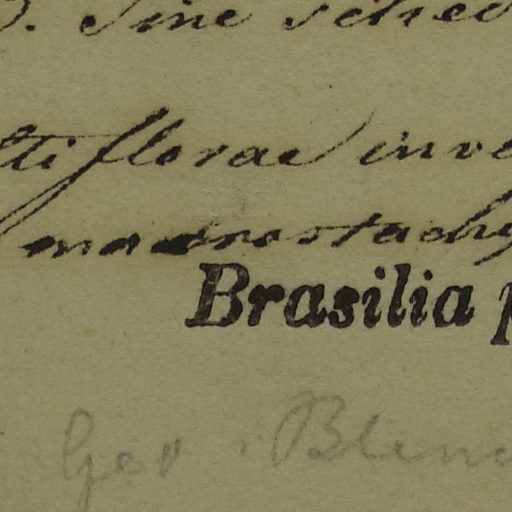 . Sine sched
ltiflorae inve
macrostachy
Brasilia p
Ges. Blen